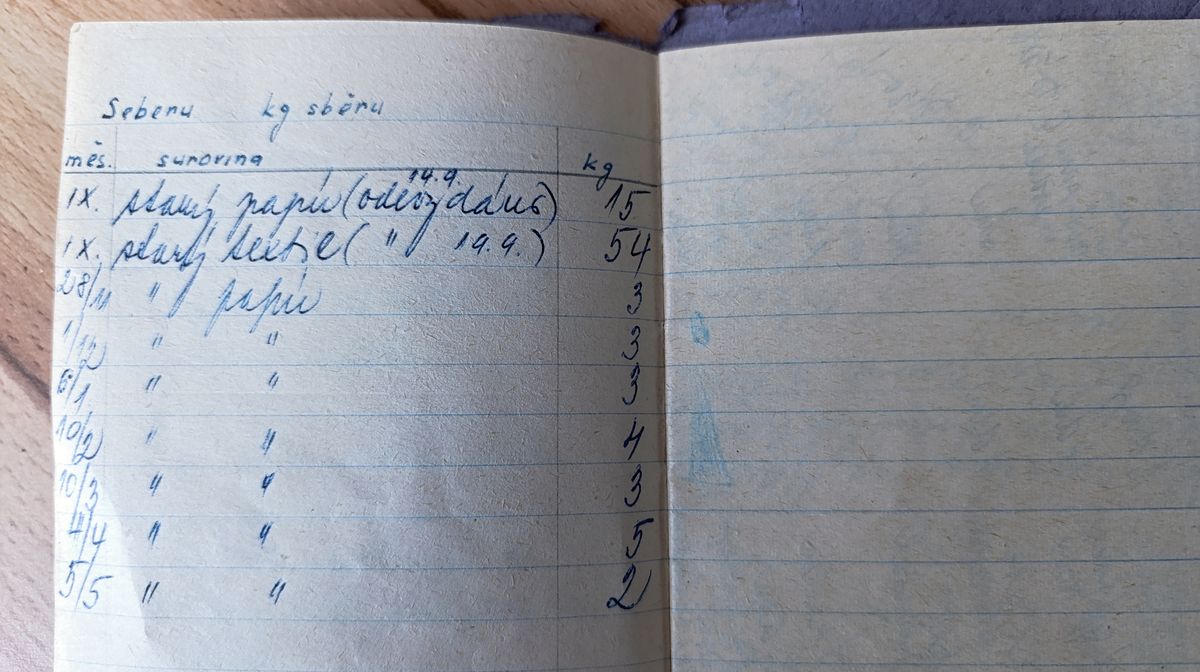 Seberu kg sběru
měs. surovina kg
14.9.
IX. starý papír (odevzdáno) 15
IX. starý textil ( " 19.9.) 54
28/11 " papír 3
1/12 " " 3
6/1 " " 3
10/2 " " 4
10/3 " " 3
4/4 " " 5
5/5 " " 2